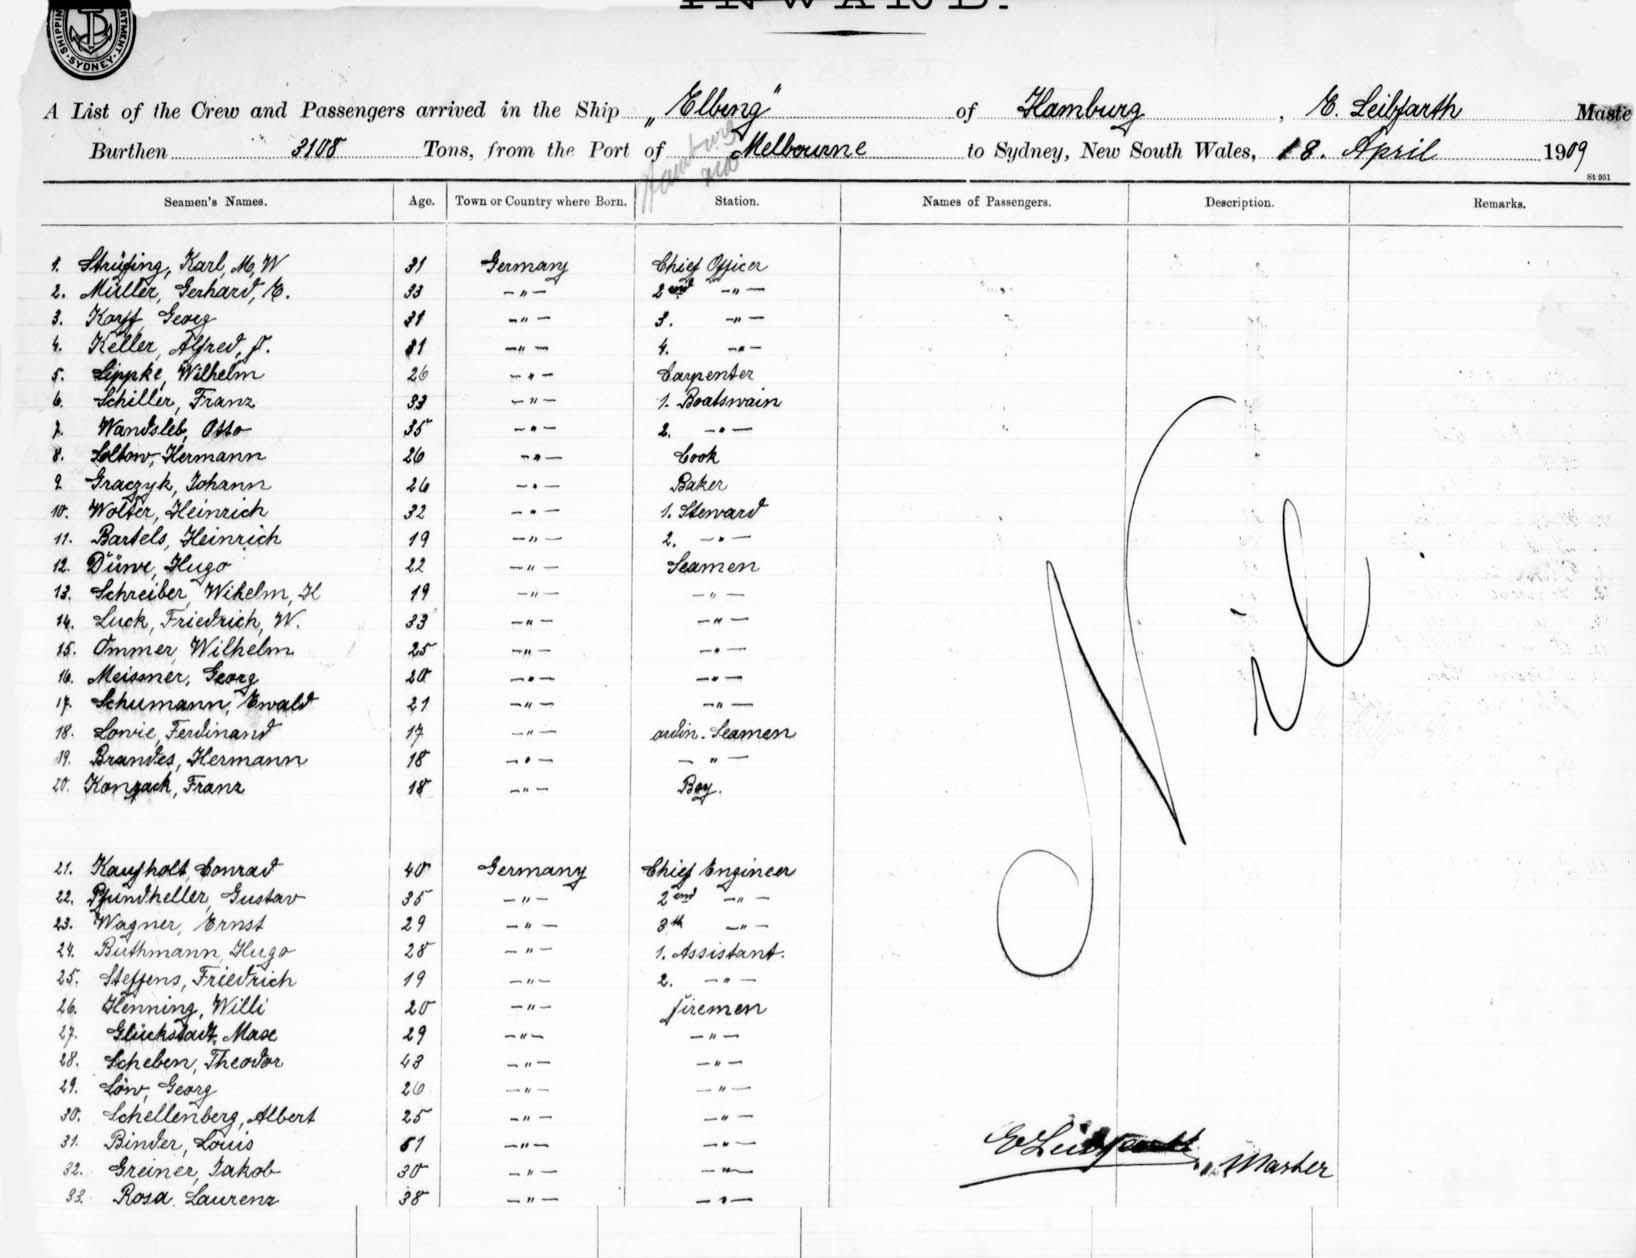 INWARD.
SHIPPING DEPARTMENT. SYDNEY.
A List of the Crew and Passengers arrived in the Ship „Elbing" of Hamburg, E. Leibfarth Maste
Burthen 3108 Tons, from the Port of Melbourne to Sydney, New South Wales, 18. April 1909
Hamburg
St 951
Seamen's Names. Age. Town or Country where Born. Station. Names of Passengers. Description. Remarks.
1. Strüfing, Karl, M, W 31 Germany Chief Officer
2. Müller, Gerhard, E. 33 -"- 2nd -"-
3. Korff, Georg 31 -"- 3. -"-
4. Keller, Alfred, J. 31 -"- 4. -"-
5. Lippke, Wilhelm 26 -"- Carpenter
6. Schiller, Franz 33 -"- 1. Boatswain
7. Wandsleb, Otto 35 -"- 2. -"-
8. Soltow, Hermann 26 -"- Cook
9. Graczyk, Johann 26 -"- Baker
10. Wolter, Heinrich 32 -"- 1. Steward
11. Bartels, Heinrich 19 -"- 2. -"-
12. Düwe, Hugo 22 -"- Seamen
13. Schreiber, Wihelm, H 19 -"- -"-
14. Luck, Friedrich, W. 33 -"- -"-
15. Ommer, Wilhelm 25 -"- -"-
16. Meissner, Georg 20 -"- -"-
17. Schumann, Ewald 21 -"- -"-
18. Lowie, Ferdinand 17 -"- ordin. Seamen
19. Brandes, Hermann 18 -"- -"-
20. Konzack, Franz 18 -"- Boy.
Nil
21. Kaufholt, Conrad 40 Germany Chief Engineer
22. Pfundheller, Gustav 35 -"- 2nd -"-
23. Wagner, Ernst 29 -"- 3th -"-
24. Büthmann, Hugo 28 -"- 1. Assistant.
25. Steffens, Friedrich 19 -"- 2. -"-
26. Henning, Willi 20 -"- firemen
27. Glückstadt, Max 29 -"- -"-
28. Scheben, Theodor 43 -"- -"-
29. Löw, Georg 26 -"- -"-
30. Schellenberg, Albert 25 -"- -"-
31. Binder, Louis 51 -"- -"-
32. Greiner, Jakob 30 -"- -"-
33. Rosa. Laurenz 38 -"- -"-
E Leibfarth, Master